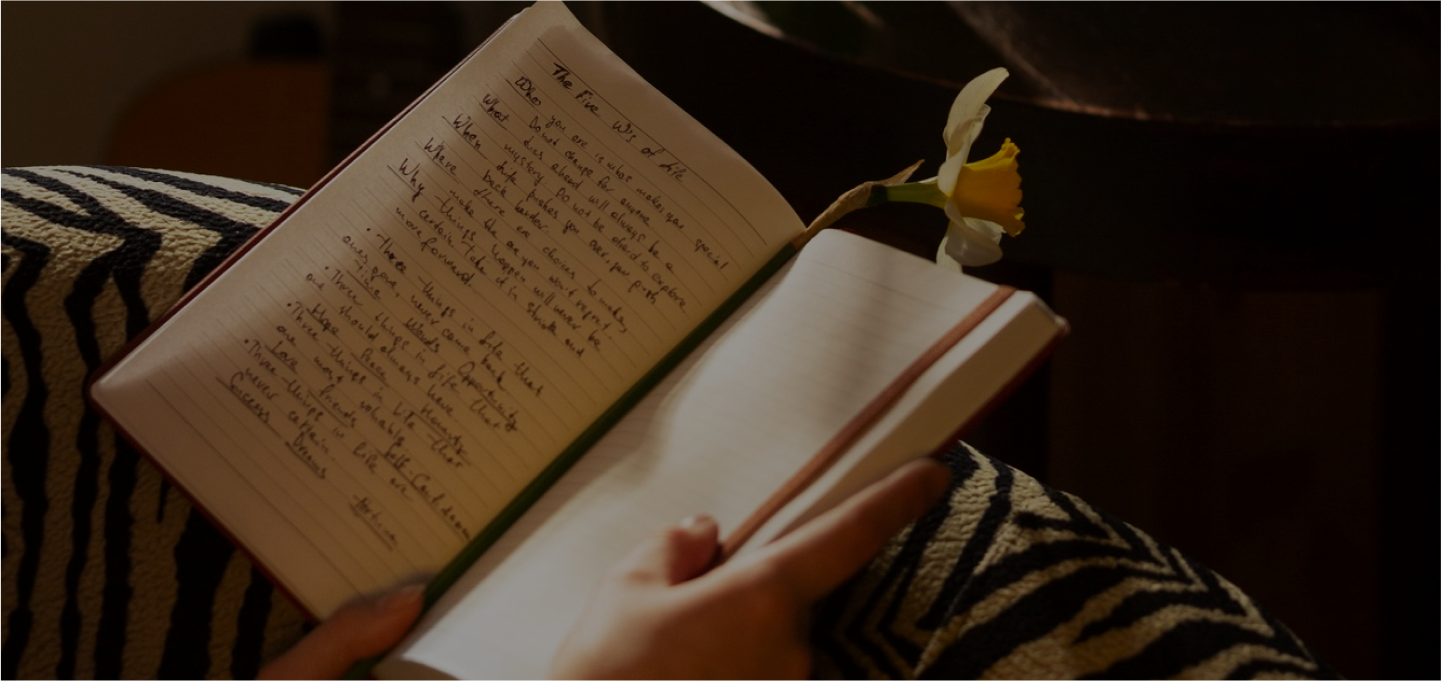 The Five W's of Life
Who you are is what makes you special
Do not change for anyone
What lies ahead will always be a
mystery Do not be afraid to explore
When life pushes you over, you push
back harder
Where there are choices to make,
make the one you won't regret.
Why things happen will never be
certain take it in stride and
move forward.
• Three things in life that
ones gone, never come back
Time Words Opportunity
• Three things in life that
one should always have
Hope Peace Honesty
• Three things in life that
are most valuable
Love Friends Self-Confidence
• Three things in life are
never certain.
Success Dreams Fortune